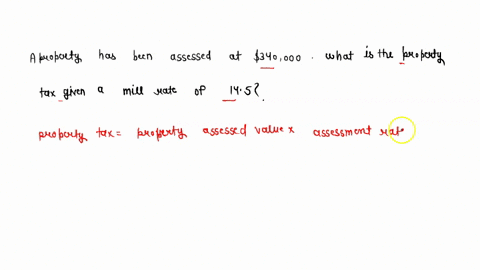 A property has been assessed at $340,000. what is the property
tax given a mill rate of 14.5?.
property tax = property assessed value x assessment rate